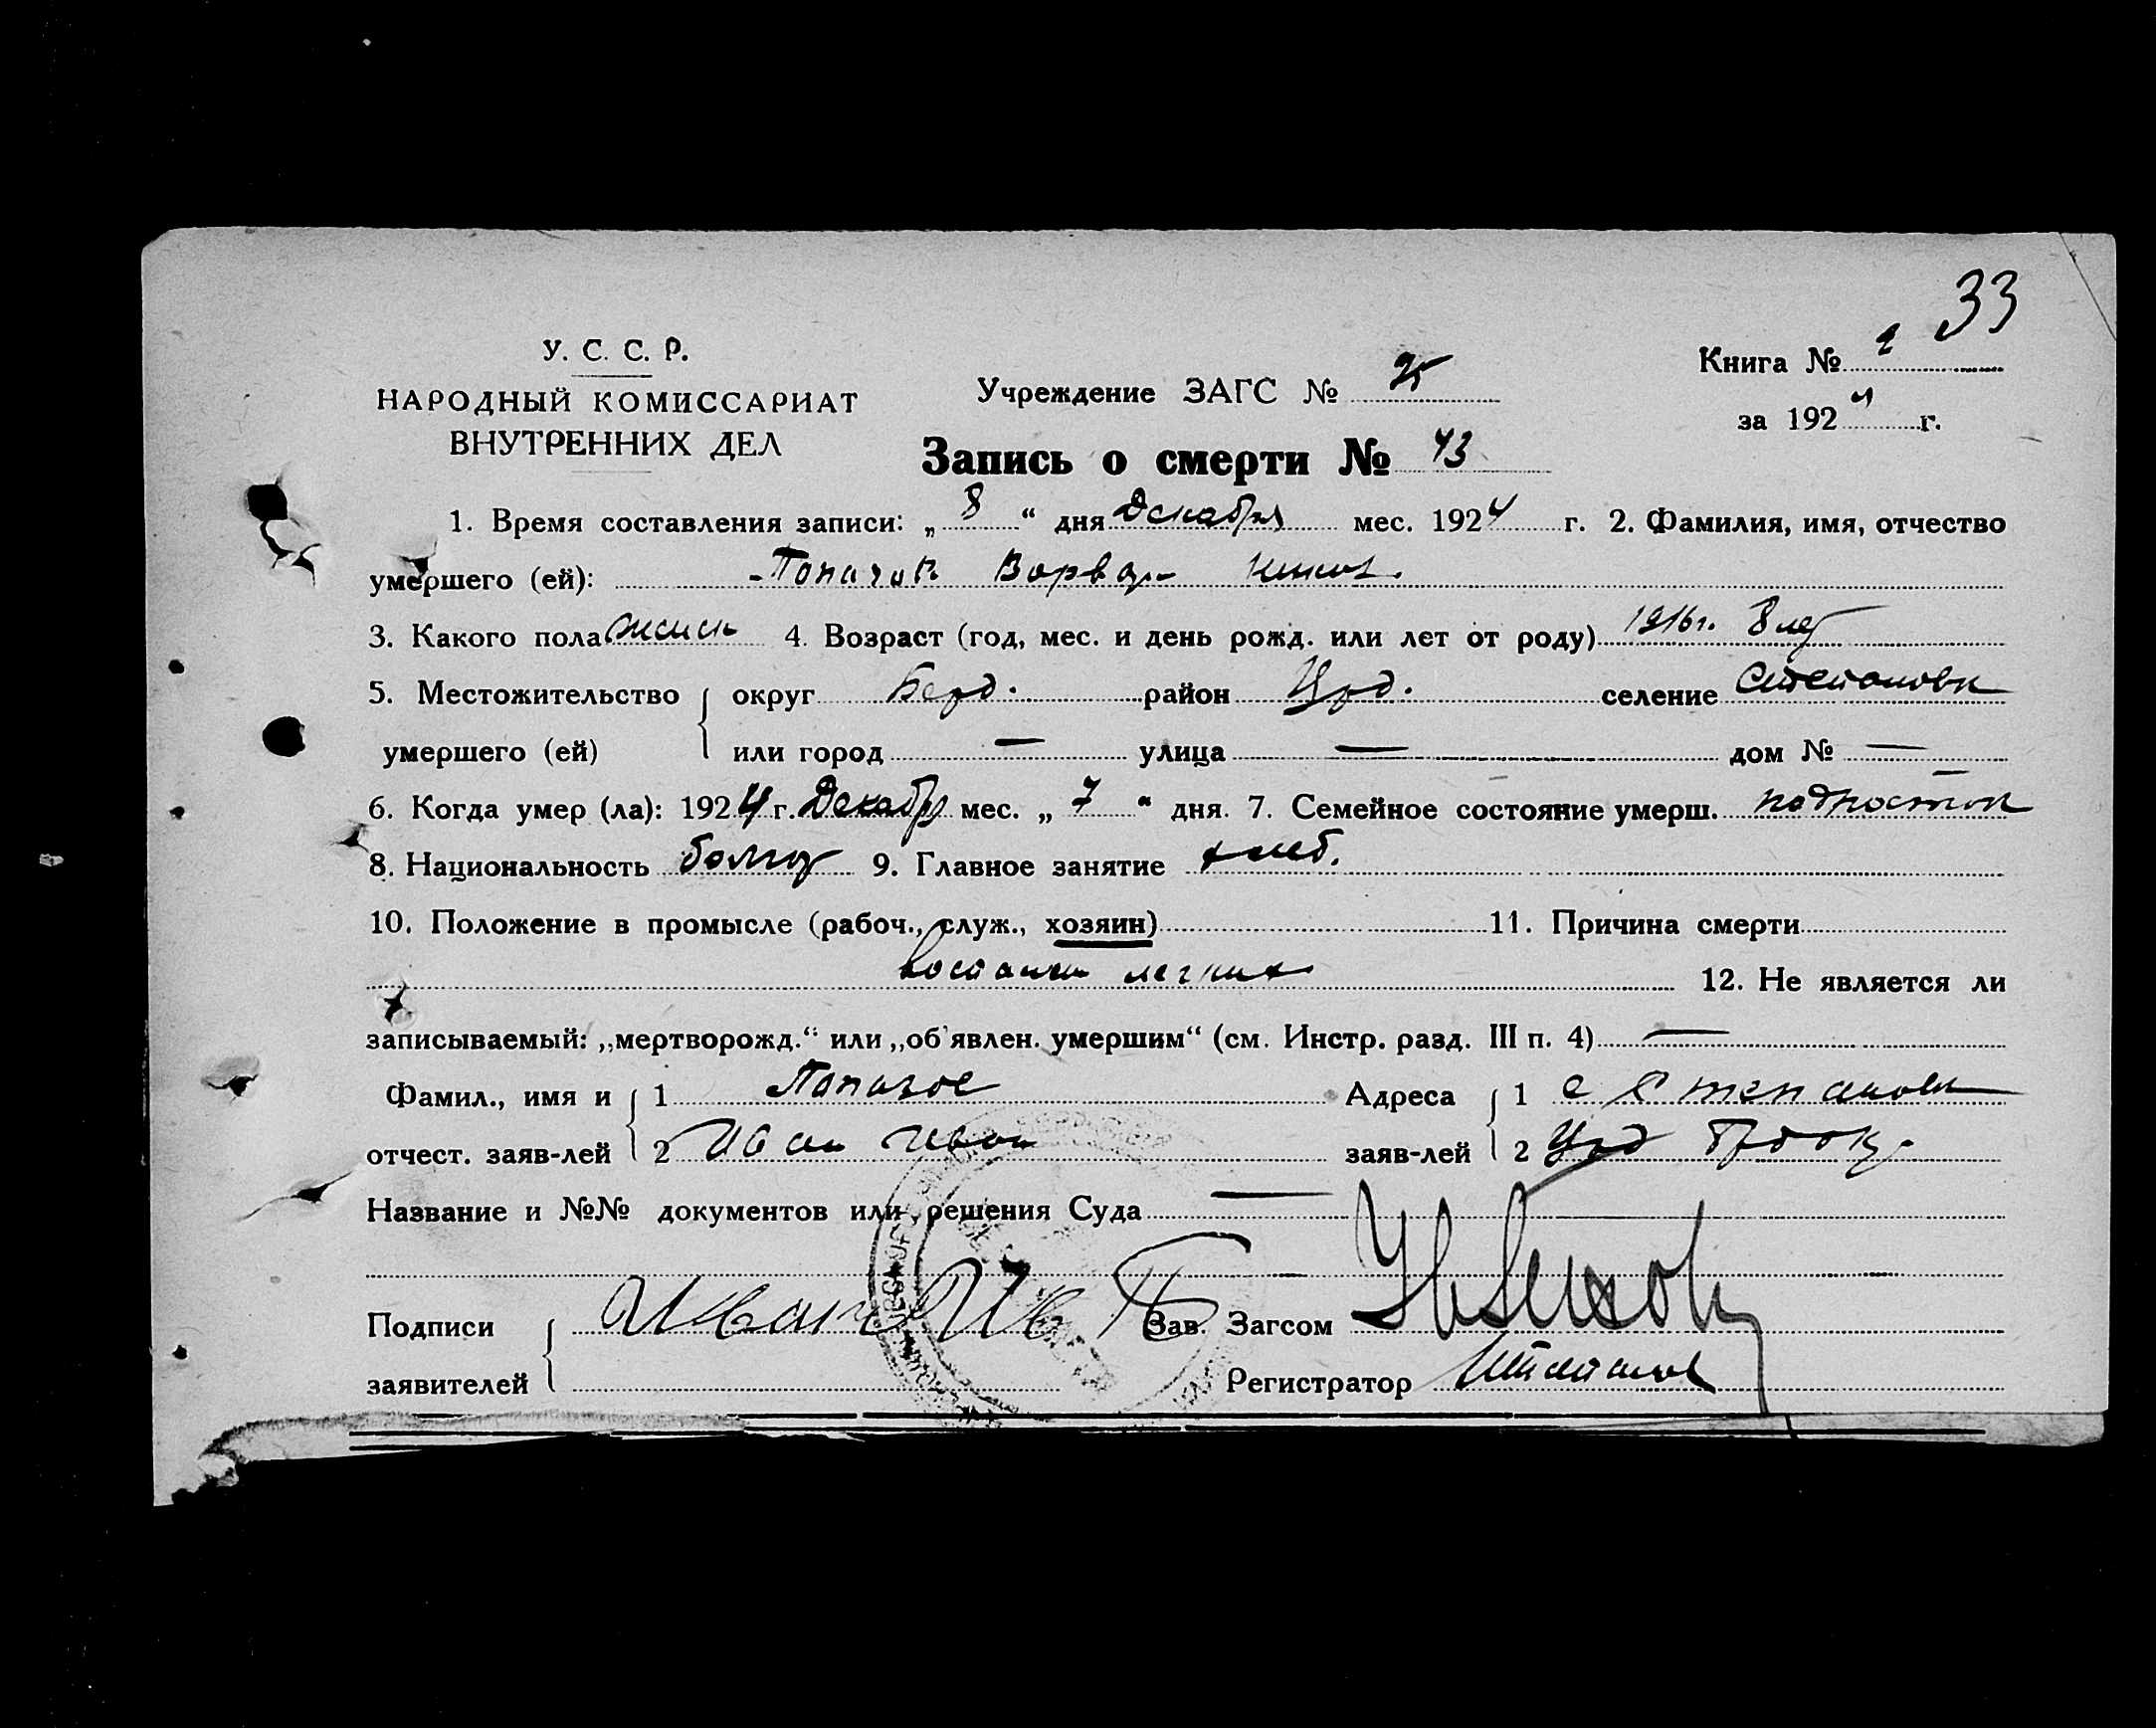 33
У. С. С. Р.
НАРОДНЫЙ КОМИССАРИАТ
ВНУТРЕННИХ ДЕЛ
Учреждение ЗАГС №
Книга № 2
за 1924 г.
Запись о смерти № 43
1. Время составления записи: „ 8 “ дня Декабря мес. 1924 г. 2. Фамилия, имя, отчество
умершего (ей): Варвар
3. Какого пола женск 4. Возраст (год, мес. и день рожд. или лет от роду) 1916 г. 8 лет
5. Местожительство округ Берд. район Цод. селение Степановк
умершего (ей) или город — улица — дом № —
6. Когда умер (ла): 1924 г. Декабр мес. „ 7 “ дня. 7. Семейное состояние умерш. подросток
8. Национальность болгар 9. Главное занятие хлеб.
10. Положение в промысле (рабоч., служ., хозяин) 11. Причина смерти
воспален легких
12. Не является ли
записываемый: „мертворожд.“ или „об'явлен. умершим“ (см. Инстр. разд. III п. 4) —
Фамил., имя и 1 Папазов Адреса 1 с Степановк
отчест. заяв-лей 2 Иван Иван заяв-лей 2 Цод
Название и №№ документов или решения Суда —
Подписи Иванъ Ив П Зав. Загсом
заявителей Регистратор